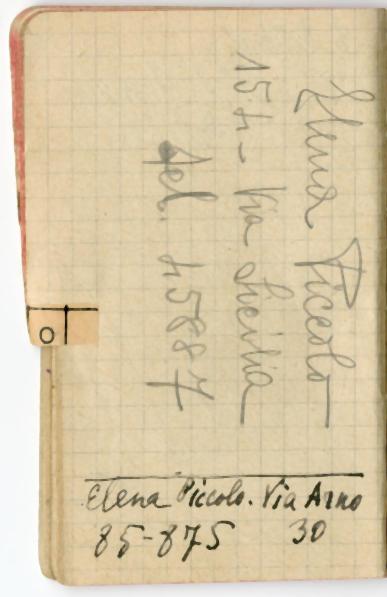 Elena Piccolo
154 - Via Sicilia
Tel. 45887
O
Elena Piccolo. Via Arno
85-875 30